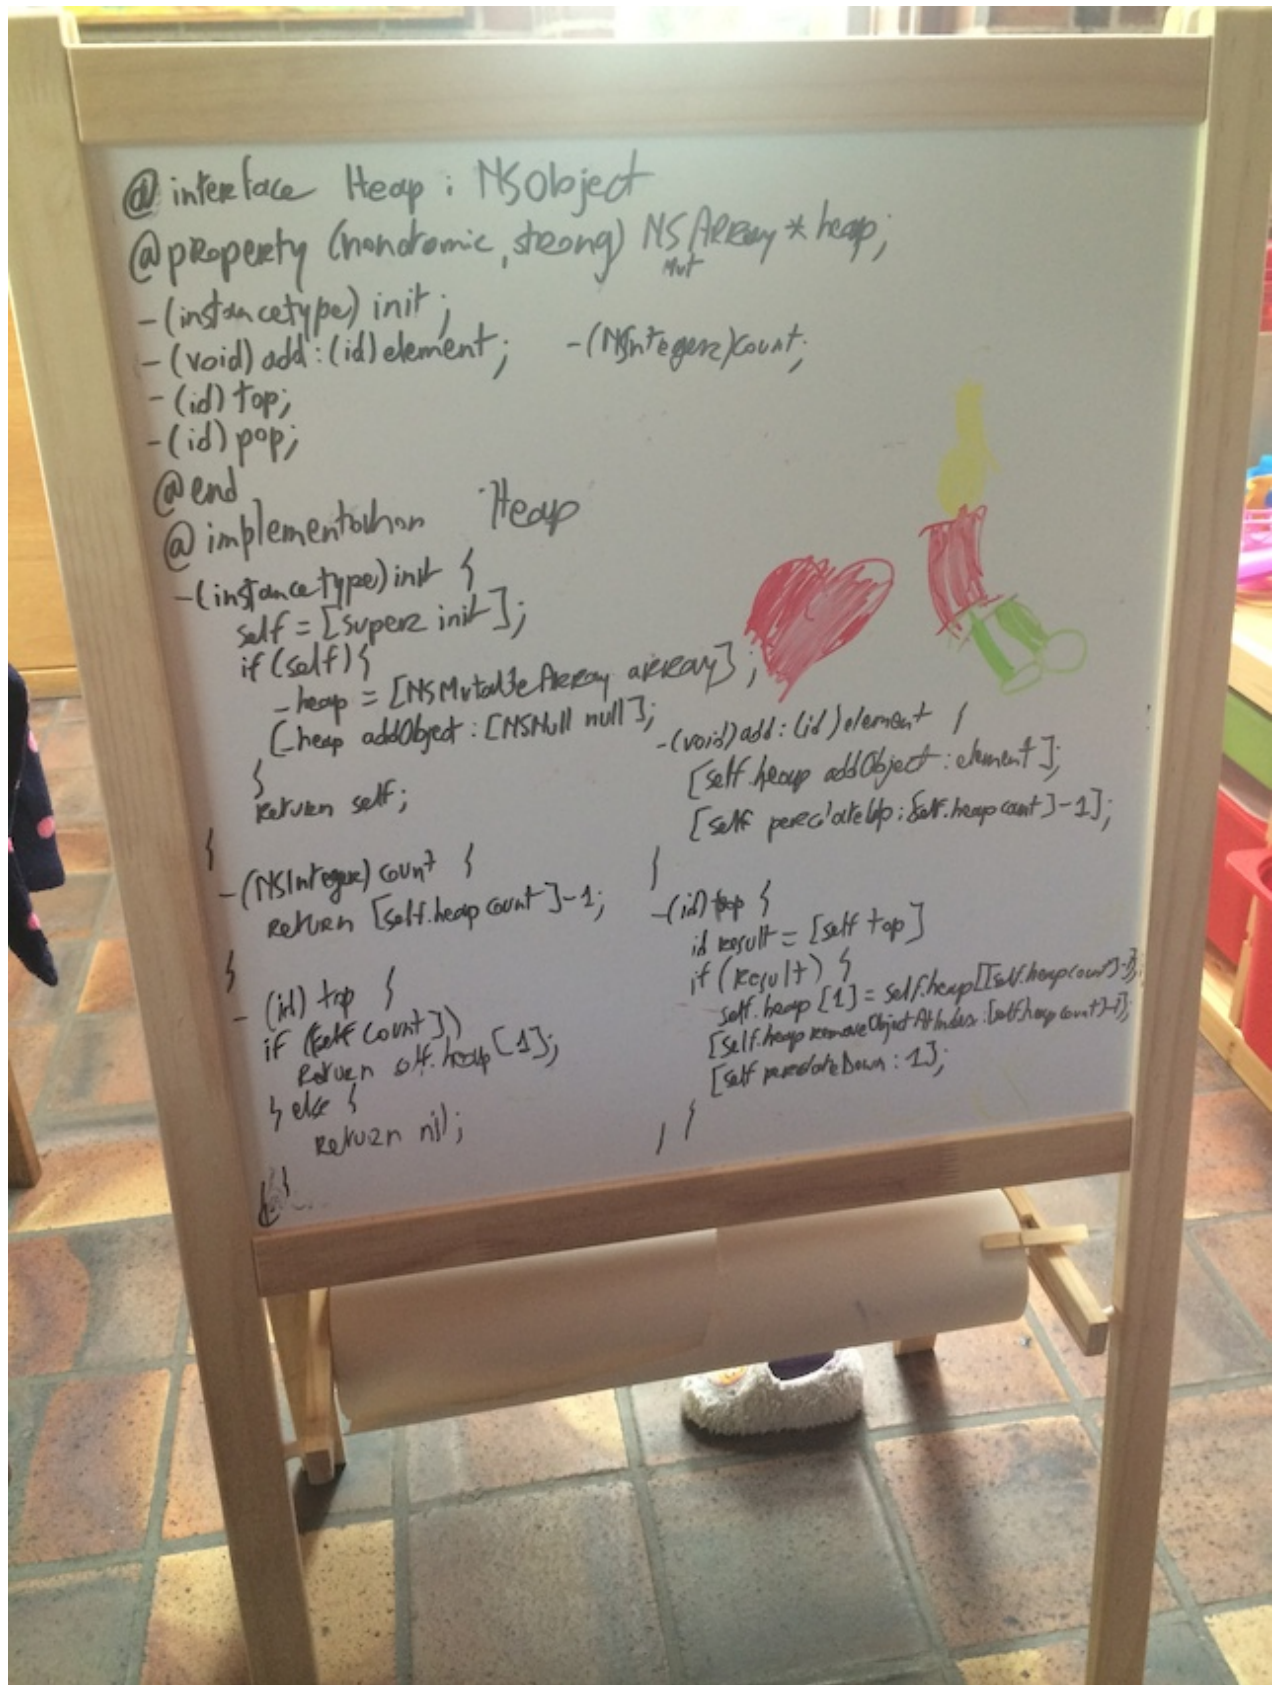 @interface Heap : NSObject
@property (nonatomic, strong) NSArray * heap;
Mut
-(instancetype) init;
-(void) add:(id) element; -(NSInteger) count;
-(id) top;
-(id) pop;
@end
@implementation Heap
-(instancetype) init {
self = [super init];
if (self) {
_heap = [NSMutableArray array];
[_heap addObject: [NSNull null];
}
return self;
}
-(NSInteger) count {
return [self.heap count]-1;
}
- (id) top {
if ([self count])
return self.heap[1];
} else {
return nil;
}
-(void) add: (id) element {
[self.heap addObject: element];
[self percolateUp: [self.heap count]-1];
}
-(id) pop {
id result = [self top]
if (result) {
self.heap [1] = self.heap[[self.heap count]-1];
[self.heap removeObjectAtIndex: [self.heap count]-1];
[self percolateDown: 1];
} }